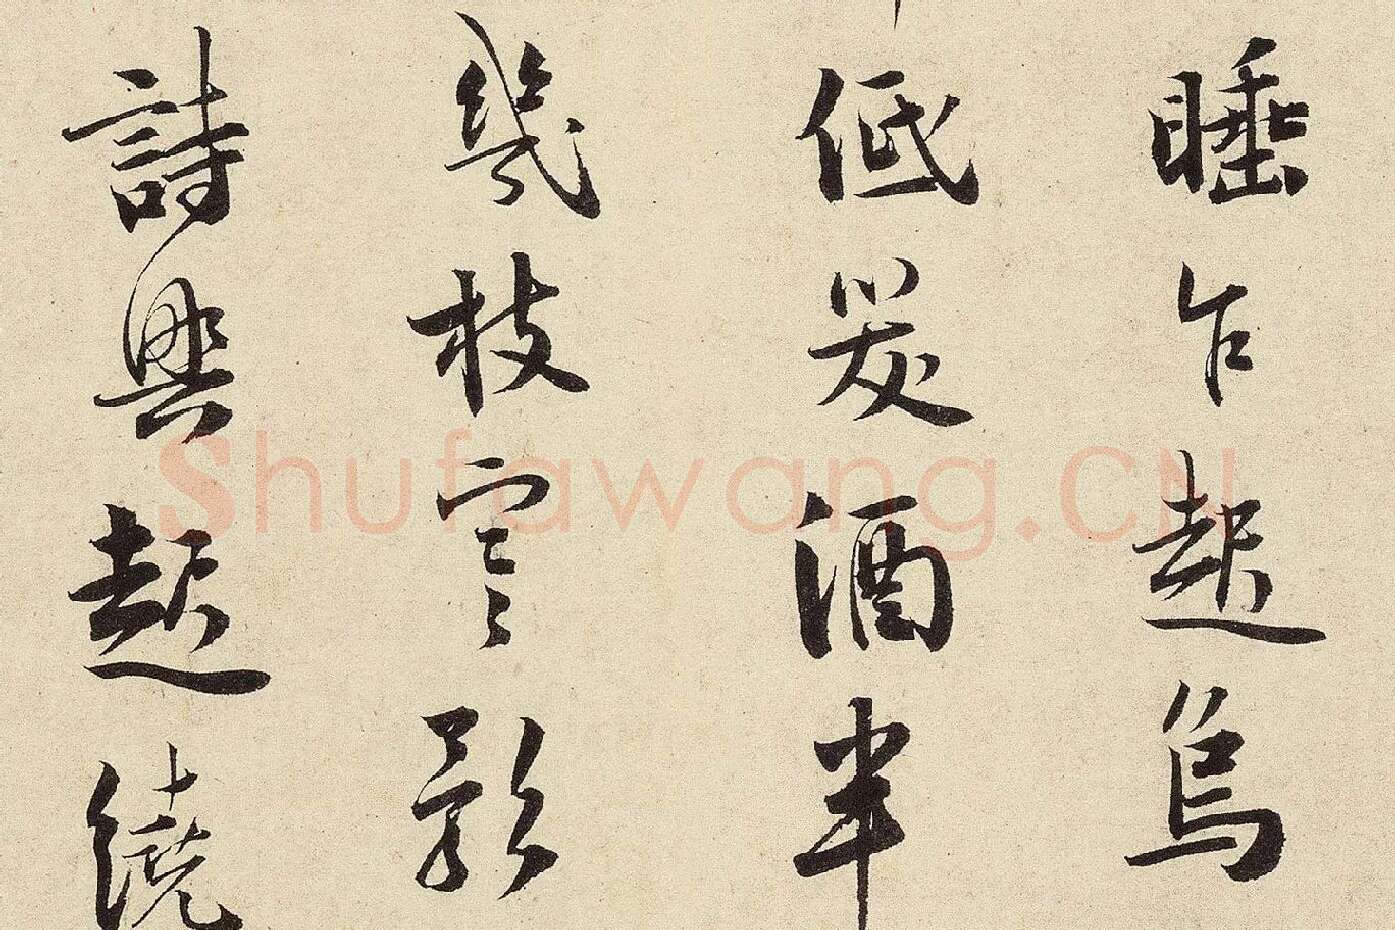 睡乍起烏
低炭酒半
幾枝寒影
詩興起繞
Shufawang.CN